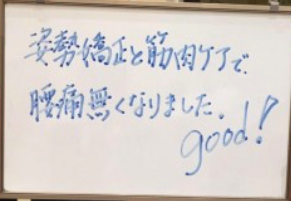 姿勢矯正と筋肉ケアで、
腰痛無くなりました。
good!